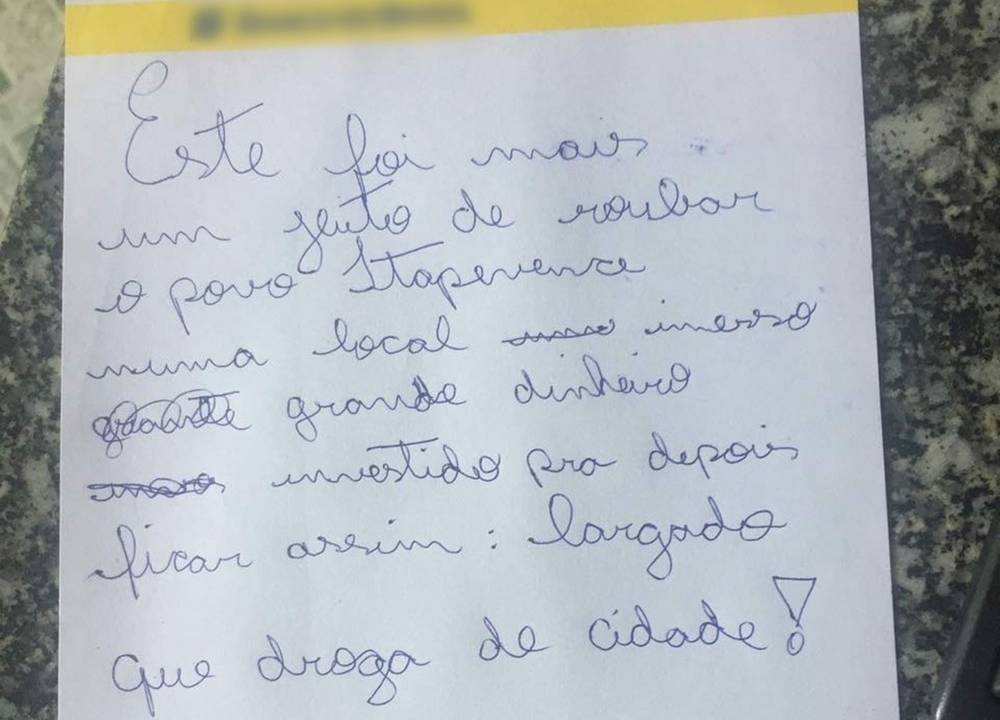 Este foi mais
um jeito de roubar
o povo Itapevence
numa local imenso
grande dinheiro
investido pra depois
ficar assim : largado
que droga de cidade!